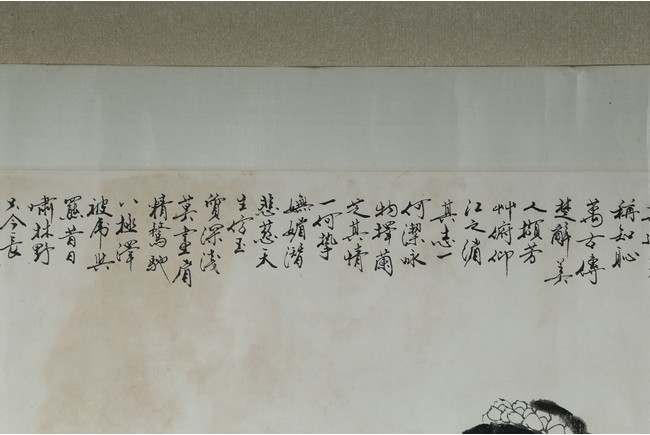 稱知恥
萬古傳
楚辭美
人擷芳
艸俯仰
江之湄
其志一
何潔咏
物擇蘭
芝其情
一何摯
嫵媚潛
悲慈天
生玉
質深淺
莫畫眉
精騖馳
八極澤
被虎與
羆昔日
嘯林野
今長